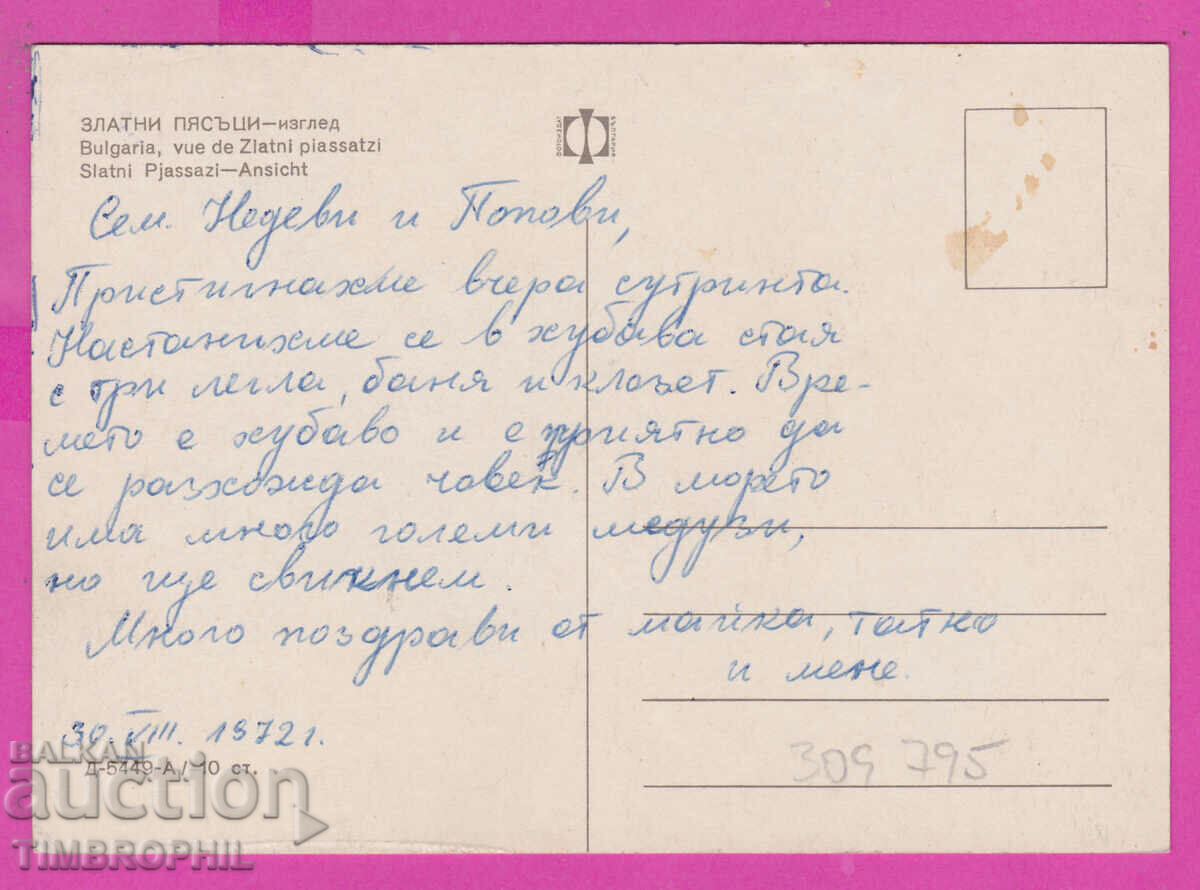 ЗЛАТНИ ПЯСЪЦИ—изглед
Bulgaria, vue de Zlatni piassatzi
Slatni Pjassazi—Ansicht
Сем. Недеви и Попови,
Пристигнахме вчера сутринта.
Настанихме се в хубава стая
с три легла, баня и клозет. Вре-
мето е хубаво и е приятно да
се разхожда човек. В морето
има много големи медузи,
но ще свикнем.
Много поздрави от майка, татко
и мене.
30. VIII. 1972 г.
Д-5449-А / 10 ст.
309 795
BALKAN
auction
TIMBROPHIL